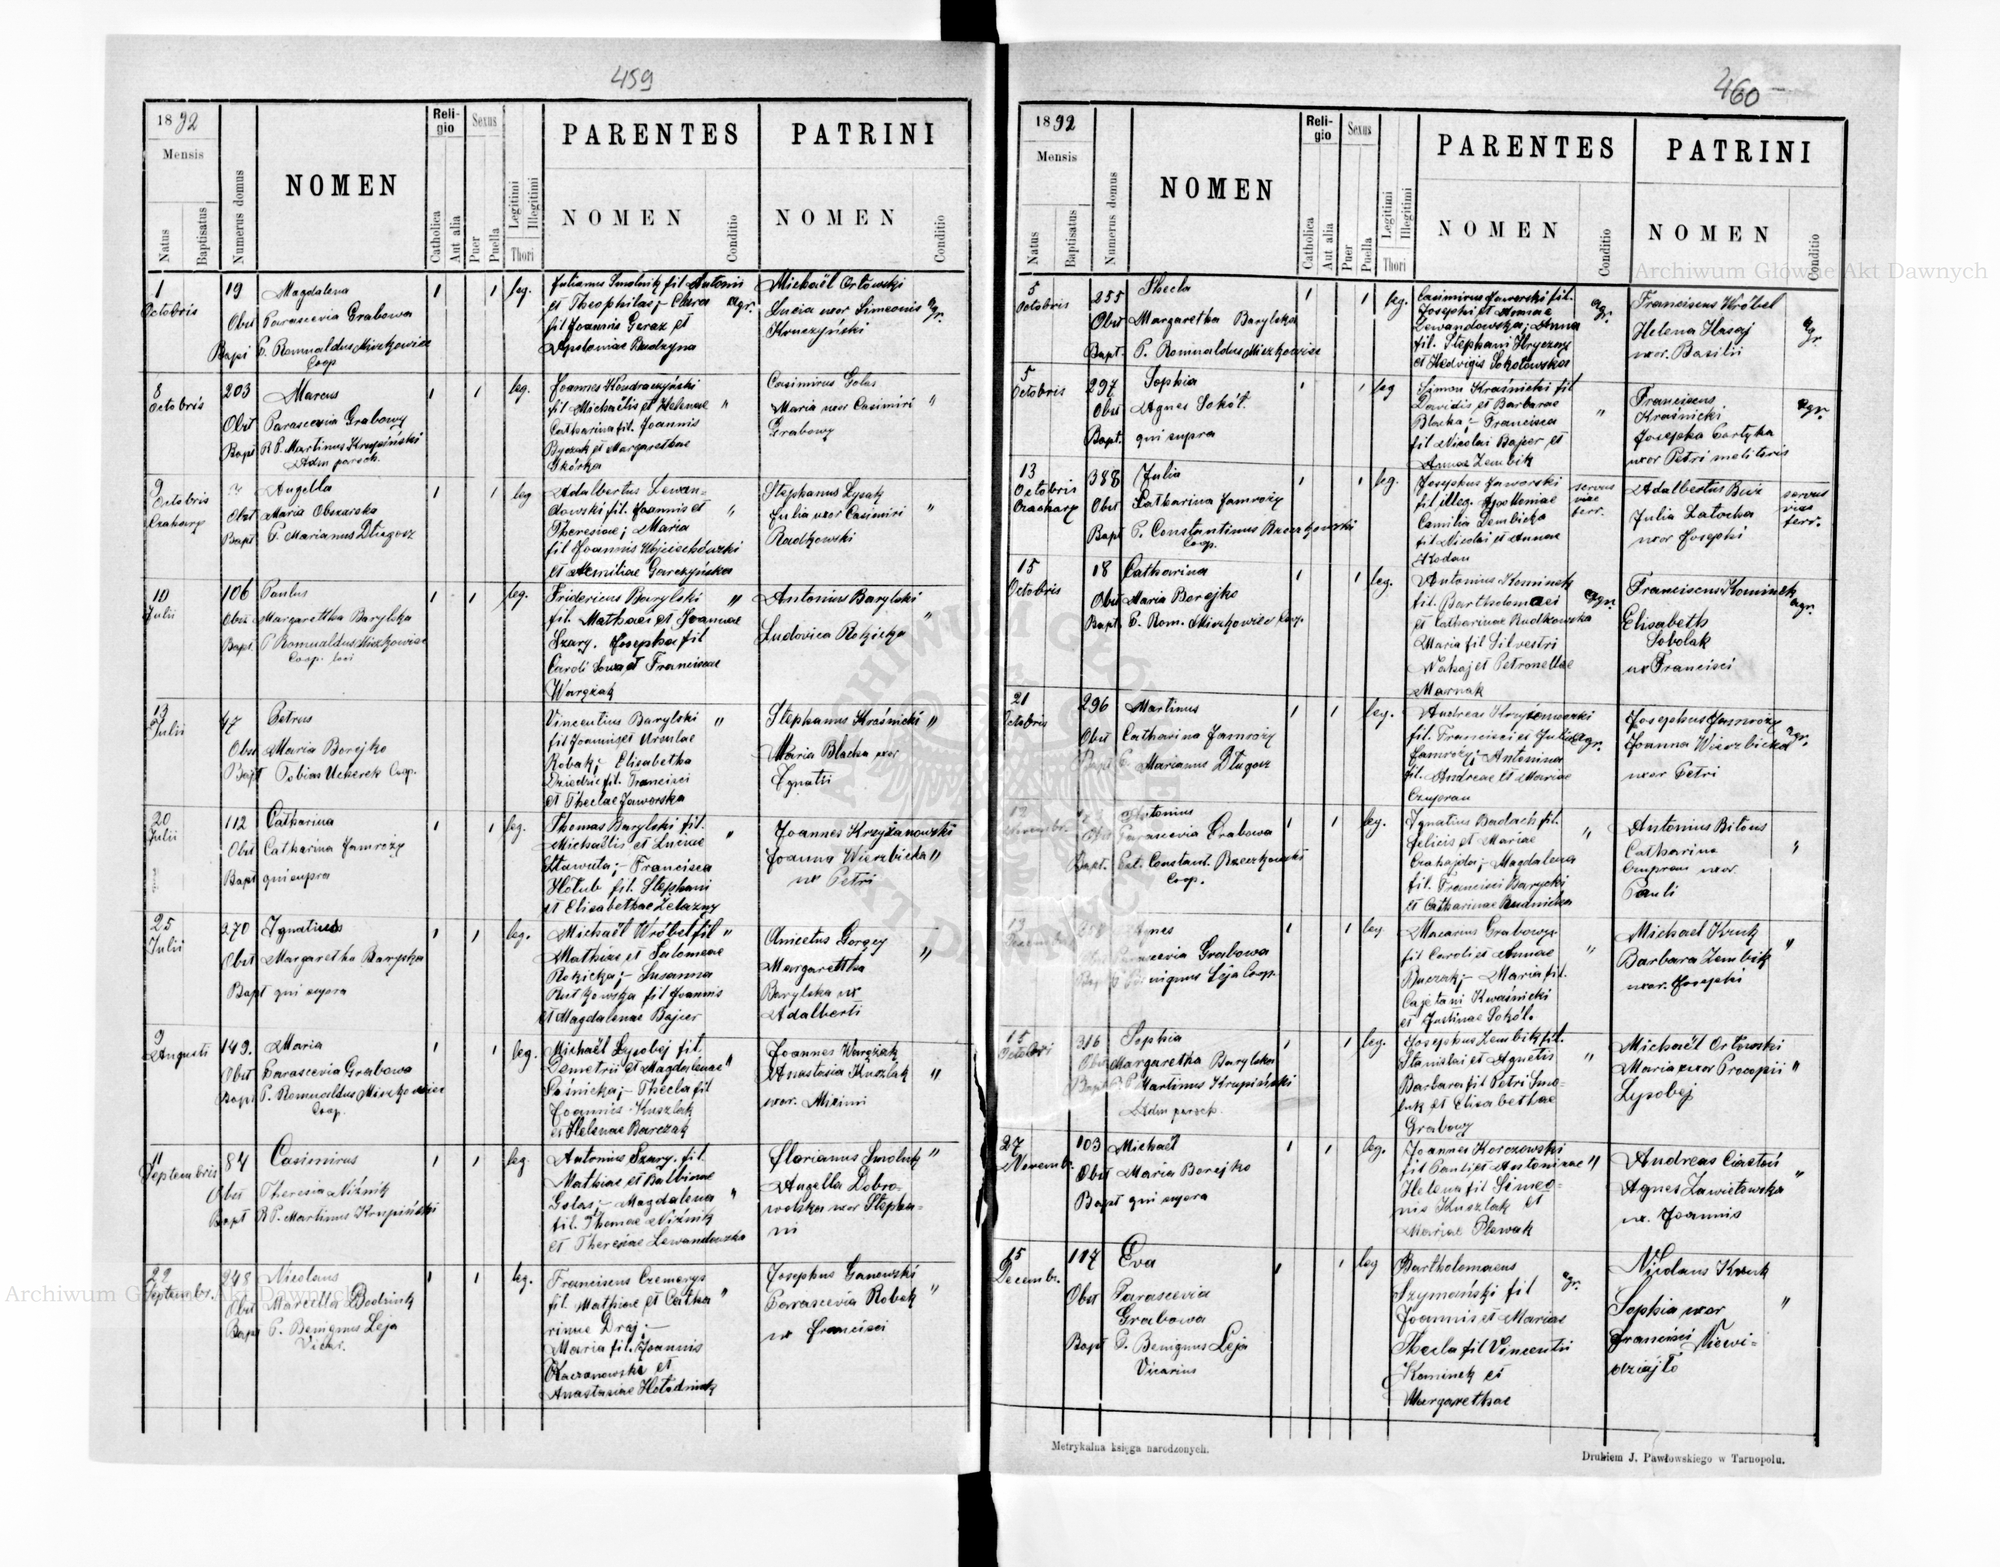 459
1892
Mensis
Natus
Baptisatus
Numerus domus
NOMEN
Religio
Catholica
Aut alia
Sexus
Puer
Puella
Legitimi
Illegitimi
Thori
PARENTES
NOMEN
Conditio
PATRINI
NOMEN
Conditio
1 19 Magdalena 1 1 leg. Julianus Smolnik fil Antonii Michaël Orłowski
Octobris Obst Parascevia Grabowa et Theophilae; Clara agr. Lucia uxor Simeonis agr.
fil Joannis Geraz et Kruczyński
Bapt P. Romualdus Mieżkowicz Apoloniae Budzyna
Coop
8 203 Marcus 1 1 leg. Joannes Kondraczyński Casimirus Golas
Octobris Obst Parascevia Grabowy fil Michaëlis et Helenae " Maria uxor Casimiri "
Bapt R P. Martinus Krupiński Catharina fil. Joannis Grabowy
Adm paroch. et Margarethae
Skórka
9 Angella 1 1 leg Adalbertus Lewan= Stephanus Łysak "
Octobris Obst Maria Obozarska dowski fil. Joannis et " Julia uxor Casimiri "
Bapt P. Marianus Długosz Theresiae; Maria Radkowski
fil Joannis Wojciechówski
et Aemiliae Garczyńska
10 106 Paulus 1 1 leg. Fridericus Barylski " Antonius Barylski
Julii Obst Margaretha Barylska fil. Mathaei et Joannae "
Bapt P Romualdus Mieżkowicz Szary. Josepha fil Ludovica Rokicka
Coop. loci Caroli Sowa et Franciscae
Wargżak
13 47 Petrus Vincentius Barylski " Stephanus Kraśnicki "
Julii Obst Maria Borejko fil Joannis et Ursulae Maria Blacha uxor
Bapt Tobias Uckerek Coop. Robak; Elisabetha Ignatii
fil. Francisci
et Theclae Jaworska
20 112 Catharina 1 1 leg. Thomas Barylski fil. Joannes Krzyżanowski
Julii Obst Catharina Jamroży Michaëlis et Lucae " Joanna Wierzbicka "
Bapt qui supra Francisca ux Petri
Hołub fil. Stephani
et Elisabethae Żelazny
25 270 Ignatius 1 1 leg. Michaël Wróbel fil " Anicetus Gorgey
Julii Obst Margaretha Barylska Mathiae et Salomeae Margaretha "
Bapt qui supra Rokicka; Susanna Barylska ux
Rutkowska fil Joannis Adalberti
et Magdalenae Bojcer
9 149. Maria 1 1 leg. Michaël Łysobej fil. Joannes Wargżak
Augusti Obst Parascevia Grabowa Demetrii et Magdalenae " Anastasia Kuszlak "
Bapt P. Romualdus Mieżkowicz Sośnicka; Thecla fil uxor.
Coop. Joannis Kuszlak
et Helenae Barczak
11 84 Casimirus 1 1 leg. Antonius Szary. fil. Florianus Smolnik "
Septembris Obst Theresia Niżnik Mathias et Balbinae Angella Dobro=
Bapt R P. Martinus Krupiński Golas; Magdalena " wolska uxor Stepha=
fil. Thomae Niżnik ni
et Theresiae Lewandowska
22 248 Nicolaus 1 1 leg. Franciscus Czemerys Josephus Ganowski
Septembr. Obst Marcella Bodnik fil. Mathiae et Catha " Parascevia Robak "
Bapt P. Benignus Leja rinae Draj; ux Francisci
Vicar. Maria fil. Joannis
Kaczanowska et
Anastasiae Hołodniuk
460
1892
Mensis
Natus
Baptisatus
Numerus domus
NOMEN
Religio
Catholica
Aut alia
Sexus
Puer
Puella
Legitimi
Illegitimi
Thori
PARENTES
NOMEN
Conditio
PATRINI
NOMEN
Conditio
5 255 Thecla 1 1 leg. Casimirus Jaworski fil. Franciscus Wróbel
Octobris Obst Margaretha Barylska Josephi et Annae agr. Helena Hasaj agr.
Bapt. P. Romualdus Mieżkowicz Lewandowska; Anna uxor. Basilii
fil. Stephani Hryczoz
et Hedvigis Sokołowska
5 297 Sophia 1 1 leg Simon Kraśnicki fil Franciscus
Octobris Obst Agnes Sokół. Davidis et Barbarae Kraśnicki agr.
Bapt. qui supra Blacha; Francisca " Josepha
fil Nicolai Bojcer et uxor Petri
Annae Zembik
13 388 Julia 1 1 leg. Josephus Jaworski servus Adalbertus servus
Octobris Obst Catharina Jamroży fil illeg. viae Julia Latocha viae
Bapt P. Constantinus Camilia Dembicka ferr. uxor Josephi ferr.
Coop. fil Nicolai et Annae
15 18 Catharina 1 1 leg. Antonius Kominek Franciscus Kominek
Octobris Obst Maria Borejko fil. Bartholomaei agr. Elisabeth agr.
Bapt. P. Rom. Mieżkowicz Coop. et Catharinae Rudkowska Sobolak
Maria fil Silvestri ux Francisci
et Petronellae
Marnak
21 296 Martinus 1 1 leg. Andreas Krzyżanowski Josephus Jamroży
Octobris Obst Catharina Jamroży fil. Francisci et Juliae agr. Joanna Wierzbicka agr.
Bapt P. Marianus Długosz Jamroży; Antonina uxor Petri
fil. Andreae et Mariae
Czupran
12 Antonius 1 1 leg. Ignatius Badach fil. Antonius Bitous
Obst Parascevia Grabowa Felicis et Mariae " Catharina "
Bapt. Ext. Constant. Czahajda; Magdalena Czupran uxor.
Coop. fil. Francisci Barycki Pauli
et Catharinae Budnicka
Agnes 1 1 leg Macarius Grabowy Michael Kruk
Parascevia Grabowa fil Caroli et Annae " Barbara Zembik "
Benignus Leja Coop. Buczak; Maria fil. uxor. Josephi
Cajetani Kwaśnicki
et Justinae Sokół.
15 216 Sophia 1 1 leg. Josephus Zembik fil. Michaël Orłowski
Octobri Obst Margaretha Barylska Stanislai et Agnetis " Maria uxor Procopii "
Bapt R P Martinus Krupiński Barbara fil Petri Smo= Łysobej
Adm paroch. lnik et Elisabethae
Grabowy
27 103 Michael 1 1 leg. Joannes Korczowski Andreas
Novembr. Obst Maria Borejko fil Pauli et Antoninae " Agnes Zawietowska "
Bapt qui supra Helena fil Simeo= ux. Joannis
nis Kuszlak et
Mariae Plewak
15 117 Eva 1 1 leg Bartholomaeus Nicolaus Kruk
Decembr. Obst Parascevia Szymański fil agr. Sophia uxor "
Grabowa Joannis et Marias Francisci Niewi=
Bapt P. Benignus Leja Thecla fil Vincentii dziajło
Vicarius Kominek et
Margarethae
Metrykalna księga narodzonych.
Drukiem J. Pawłowskiego w Tarnopolu.
Archiwum Główne Akt Dawnych
Archiwum Główne Akt Dawnych
ARCHIWUM GŁÓWNE AKT DAWNYCH